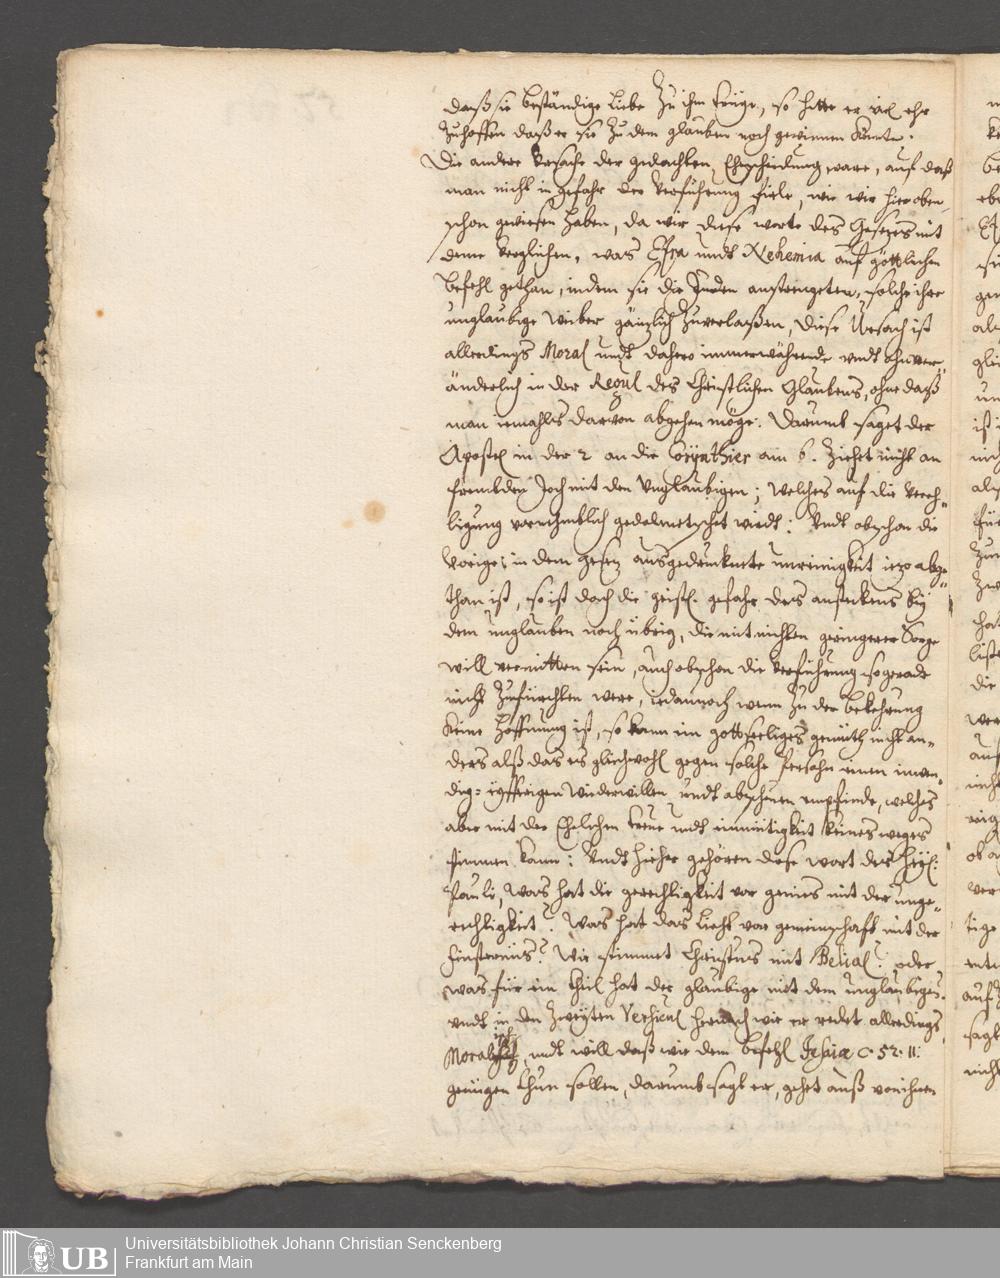 daß sie beständige liebe zu ihm trüge, so hette er viel ehr
zuhoffen daß er sie zu dem glauben noch gewinnen könte.
Die andere Ursache der gedachten Ehscheidung ware, auf daß
man nicht in gefahr der verführung fiele, wie wir hier oben
schon gewiesen haben, da wir diese worte des Gesetzes mit
deme verglichen, was Esra undt Nehemia auf göttlichen
befehl gethan, indem sie die Juden anstrengeten, solche ihre
unglaubige Weiber gäntzlich zuverlaßen, diese Ursach ist
allerdings Moral undt dahero immerwährende undt ohnver-
änderlich in der Regul des Christlichen Glaubens, ohne daß
man iemahls darvon abgehen möge. Darumb saget der
Apostel in der 2 an die Corynthier am 6. Ziehet nicht an
frembden Joch mit den Unglaubigen; welches auf die Vereh-
ligung vornehmblich gedolmetschet wirdt: Undt obschon die
Vorige, in dem gesetz ausgedruckete unreinigkeit iezo abge-
than ist, so ist doch die geistl. gefahr des ansteckens bey
dem unglauben noch übrig, die mit nichten geringerer Sorge
will vermitten sein, auch obschon die verführung so gerade
nicht zufürchten were, iedannoch wenn zu der bekehrung
keine hoffnung ist, so kann ein gottseeliges gemüth nicht an-
ders alß das es gleichwohl gegen solche Persohn einen inwen-
dig- eyffrigen Wiederwillen undt abscheuen empfinde, welches
aber mit der Ehelichen treue undt innmütigkeit keines weges
stimmen kann: Undt hieher gehören diese wort des Heyl:
Pauli, Was hat die gerechtigkeit vor genies mit der unge-
rechtigkeit? Was hat das Licht vor gemeinschaft mit der
finsternüs? Wie stimmet Christus mit Belial? oder
was für ein theil hat der glaubige mit dem unglaubigen.
undt in den Zweyten Versicul hernach wie er redet allerdings
Moralisch, undt will daß wir dem befehl Jesaiæ C. 52. 11:
genügen thun sollen, darumb sagt er, gehet auß von ihnen
UB
Universitätsbibliothek Johann Christian Senckenberg
Frankfurt am Main